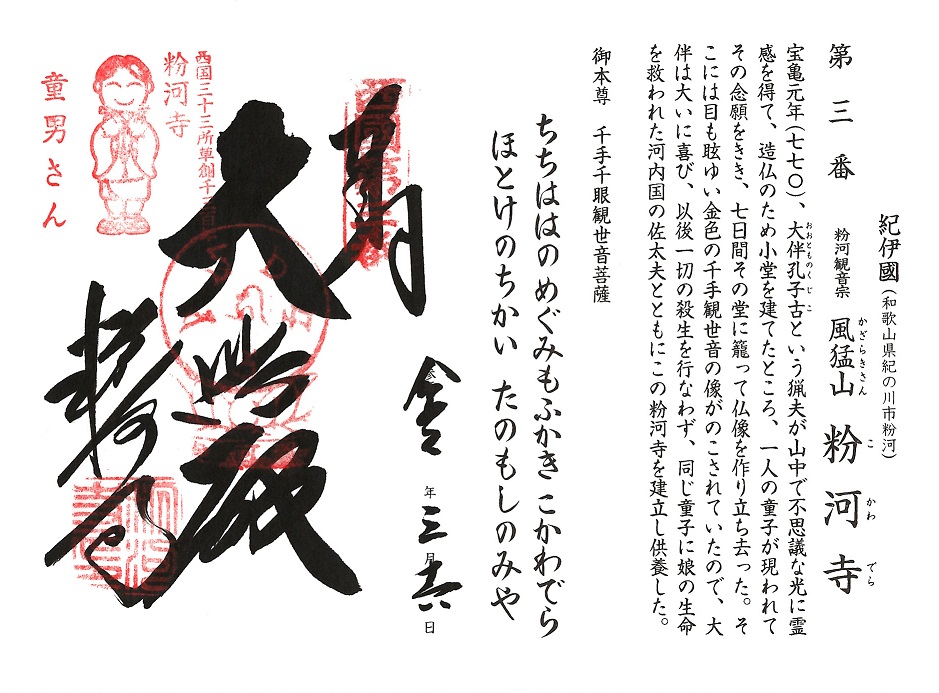 紀伊國(和歌山県紀の川市粉河)
第三番 粉河観音宗 風猛山 粉河寺
かざらきさん こ かわ でら
宝亀元年(七七〇)、大伴孔子古という猟夫が山中で不思議な光に霊
おおとものくじこ
感を得て、造仏のため小堂を建てたところ、一人の童子が現われて
その念願をきき、七日間その堂に籠って仏像を作り立ち去った。そ
こには目も眩ゆい金色の千手観世音の像がのこされていたので、大
伴は大いに喜び、以後一切の殺生を行なわず、同じ童子に娘の生命
を救われた河内国の佐太夫とともにこの粉河寺を建立し供養した。
御本尊 千手千眼観世音菩薩
ちちははのめぐみもふかきこかわでら
ほとけのちかい たのもしのみや
年三月 日
奉
大悲殿
粉河寺
西国三十三所草創千三百
粉河寺
童男さん